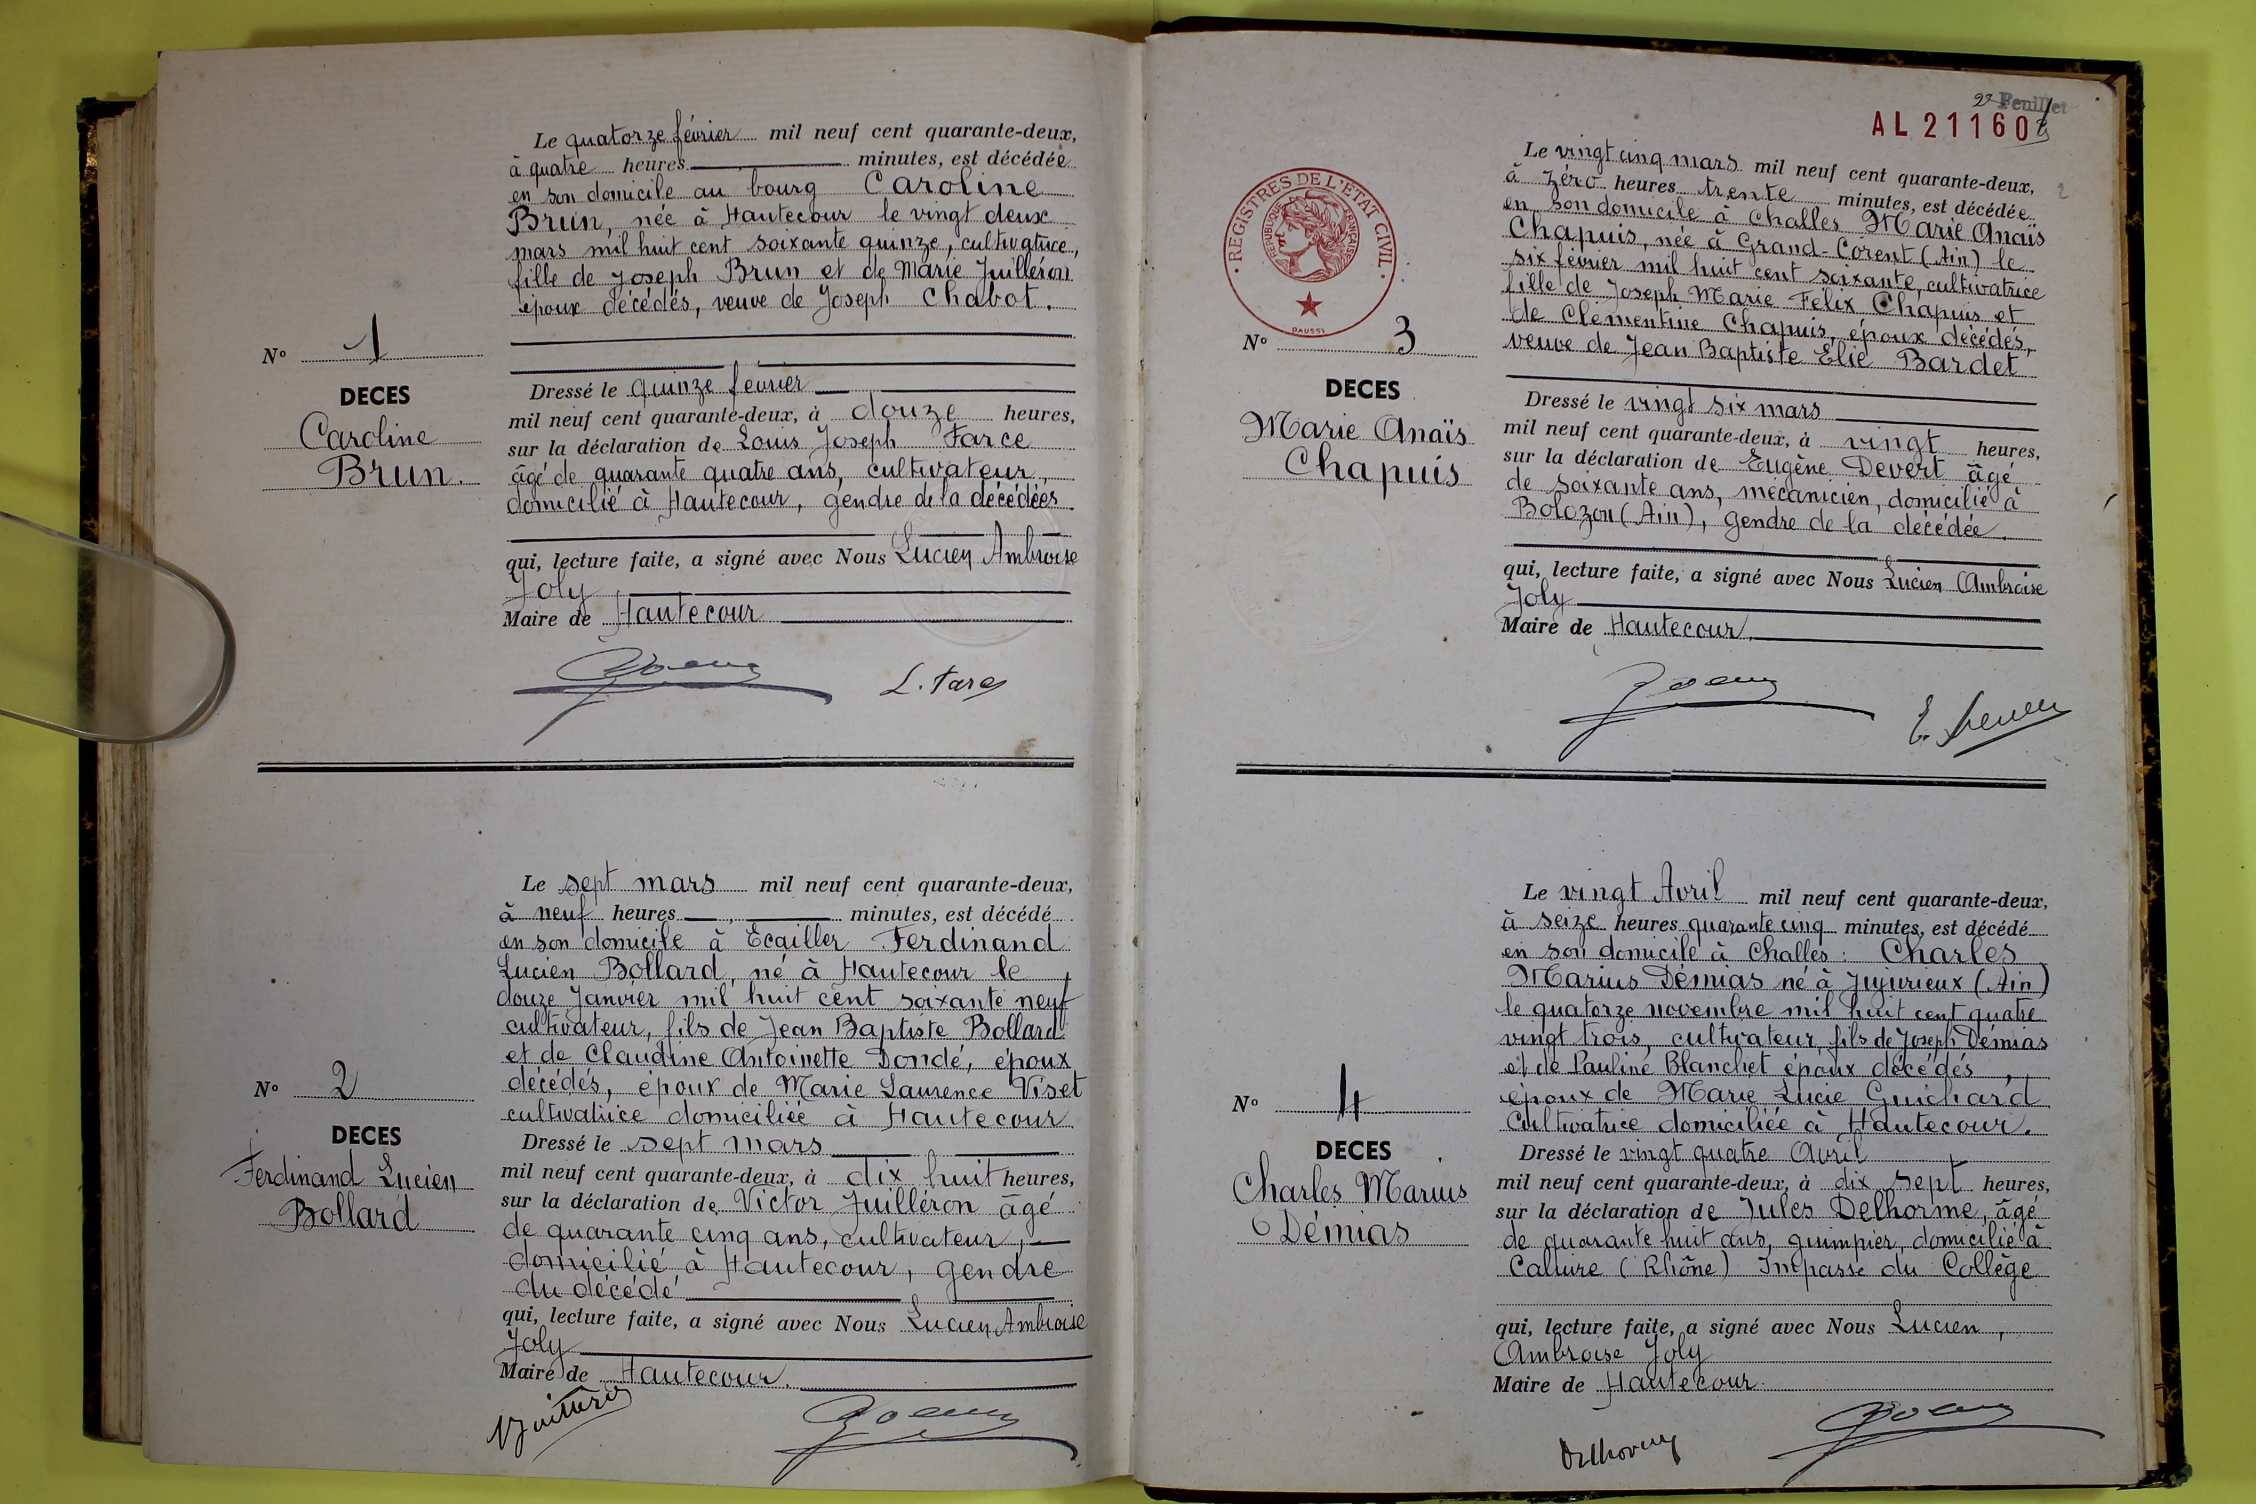 Le quatorze février mil neuf cent quarante-deux,
à quatre heures minutes, est décédée
en son domicile au bourg Caroline
Brun, née à Hautecour le vingt deux
mars mil huit cent soixante quinze, cultivatrice,
fille de Joseph Brun et de Marie Juilléron
époux décédés, veuve de Joseph Chabot.
N° 1
DECES
Caroline
Brun.
Dressé le quinze février
mil neuf cent quarante-deux, à douze heures,
sur la déclaration de Louis Joseph Farce
âgé de quarante quatre ans, cultivateur,
domicilié à Hautecour, gendre de la décédées
qui, lecture faite, a signé avec Nous Lucien Ambroise
Joly
Maire de Hautecour
L. Farce
Le sept mars mil neuf cent quarante-deux,
à neuf heures minutes, est décédé
en son domicile à Ecailler Ferdinand
Lucien Bollard, né à Hautecour le
douze Janvier mil huit cent soixante neuf
cultivateur, fils de Jean Baptiste Bollard
et de Claudine Antoinette Dondé, époux
décédés, époux de Marie Laurence Viset
cultivatrice domiciliée à Hautecour
N° 2
DECES
Ferdinand Lucien
Bollard
Dressé le sept mars
mil neuf cent quarante-deux, à dix huit heures,
sur la déclaration de Victor Juilléron âgé
de quarante cinq ans, cultivateur,
domicilié à Hautecour, gendre
du décédé
qui, lecture faite, a signé avec Nous Lucien Ambroise
Joly
Maire de Hautecour.
Feuillet
AL 21160
REGISTRES DE L'ETAT CIVIL
REPUBLIQUE FRANÇAISE
DAUSSI
Le vingt cinq mars mil neuf cent quarante-deux,
à zéro heures trente minutes, est décédée
en son domicile à Challes Marie Anaïs
Chapuis, née à Grand-Corent (Ain) le
six février mil huit cent soixante, cultivatrice
fille de Joseph Marie Félix Chapuis et
de Clémentine Chapuis, époux décédés,
veuve de Jean Baptiste Elie Bardet
N° 3
DECES
Marie Anaïs
Chapuis
Dressé le vingt six mars
mil neuf cent quarante-deux, à vingt heures,
sur la déclaration de Eugène Devert âgé
de soixante ans, mécanicien, domicilié à
Bolozon (Ain), gendre de la décédée.
qui, lecture faite, a signé avec Nous Lucien Ambroise
Joly
Maire de Hautecour
Le vingt Avril mil neuf cent quarante-deux,
à seize heures quarante cinq minutes, est décédé
en son domicile à Challes Charles
Marius Démias né à Jujurieux (Ain)
le quatorze novembre mil huit cent quatre
vingt trois, cultivateur, fils de Joseph Démias
et de Pauline Blanchet époux décédés,
époux de Marie Lucie Guichard
Cultivatrice domiciliée à Hautecour.
N° 4
DECES
Charles Marius
Démias
Dressé le vingt quatre Avril
mil neuf cent quarante-deux, à dix sept heures,
sur la déclaration de Jules Delhorme, âgé
de quarante huit ans, guimpier, domicilié à
Caluire (Rhône) Impasse du Collège
qui, lecture faite, a signé avec Nous Lucien,
Ambroise Joly
Maire de Hautecour
Delhorme